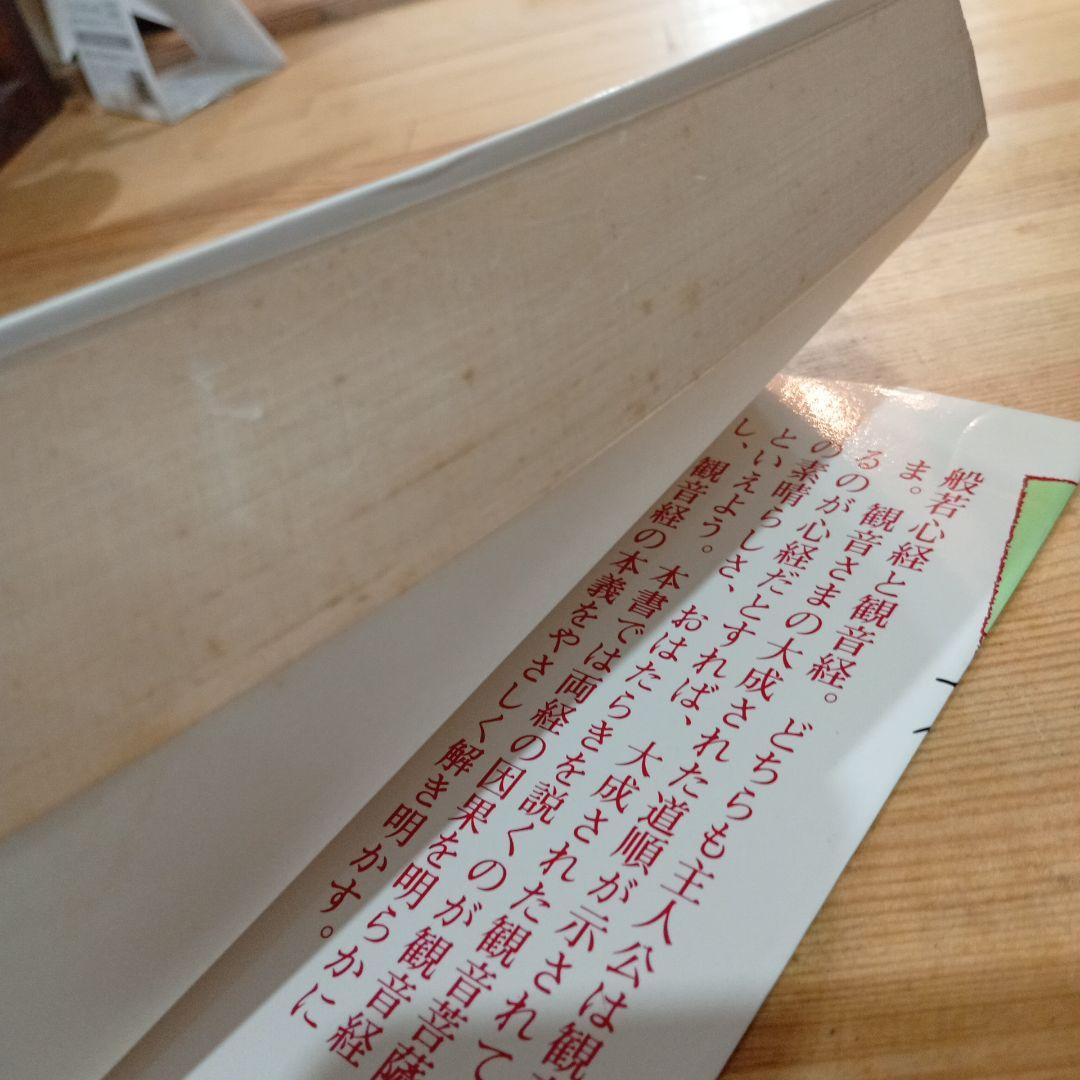 般若心経と観音経。どちらも主人公は観音
ま。観音さまの大成された道順が示されて
るのが心経だとすれば、大成された観音菩薩
の素晴らしさ、おはたらきを説くのが観音経
といえよう。本書では両経の因果を明らかに
し、観音経の本義をやさしく解き明かす。